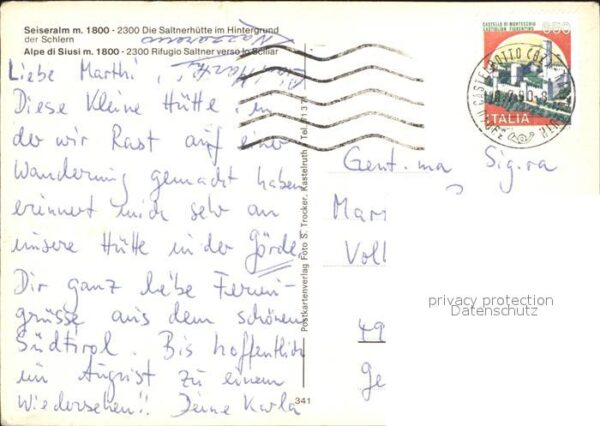 Seiseralm m. 1800 - 2300 Die Saltnerhütte im Hintergrund
der Schlern
Alpe di Siusi m. 1800 - 2300 Rifugio Saltner verso lo Sciliar
Liebe Marthi,
Diese kleine Hütte, in
der wir Rast auf einer
Wanderung gemacht haben
erinnert mich sehr an
unsere Hütte in der Görde.
Dir ganz liebe Ferien-
grüsse aus dem schönen
Südtirol. Bis hoffentlich
im August zu einem
Wiedersehen!! Deine Karla
341
Postkartenverlag Foto S. Trocker, Kastelruth Tel.
CASTELLO DI MONTECCHIO
CASTIGLION FIORENTINO
650
ITALIA
90
Gent.ma Sig.ra
Mari
Voll
49
Ge
privacy protection
Datenschutz